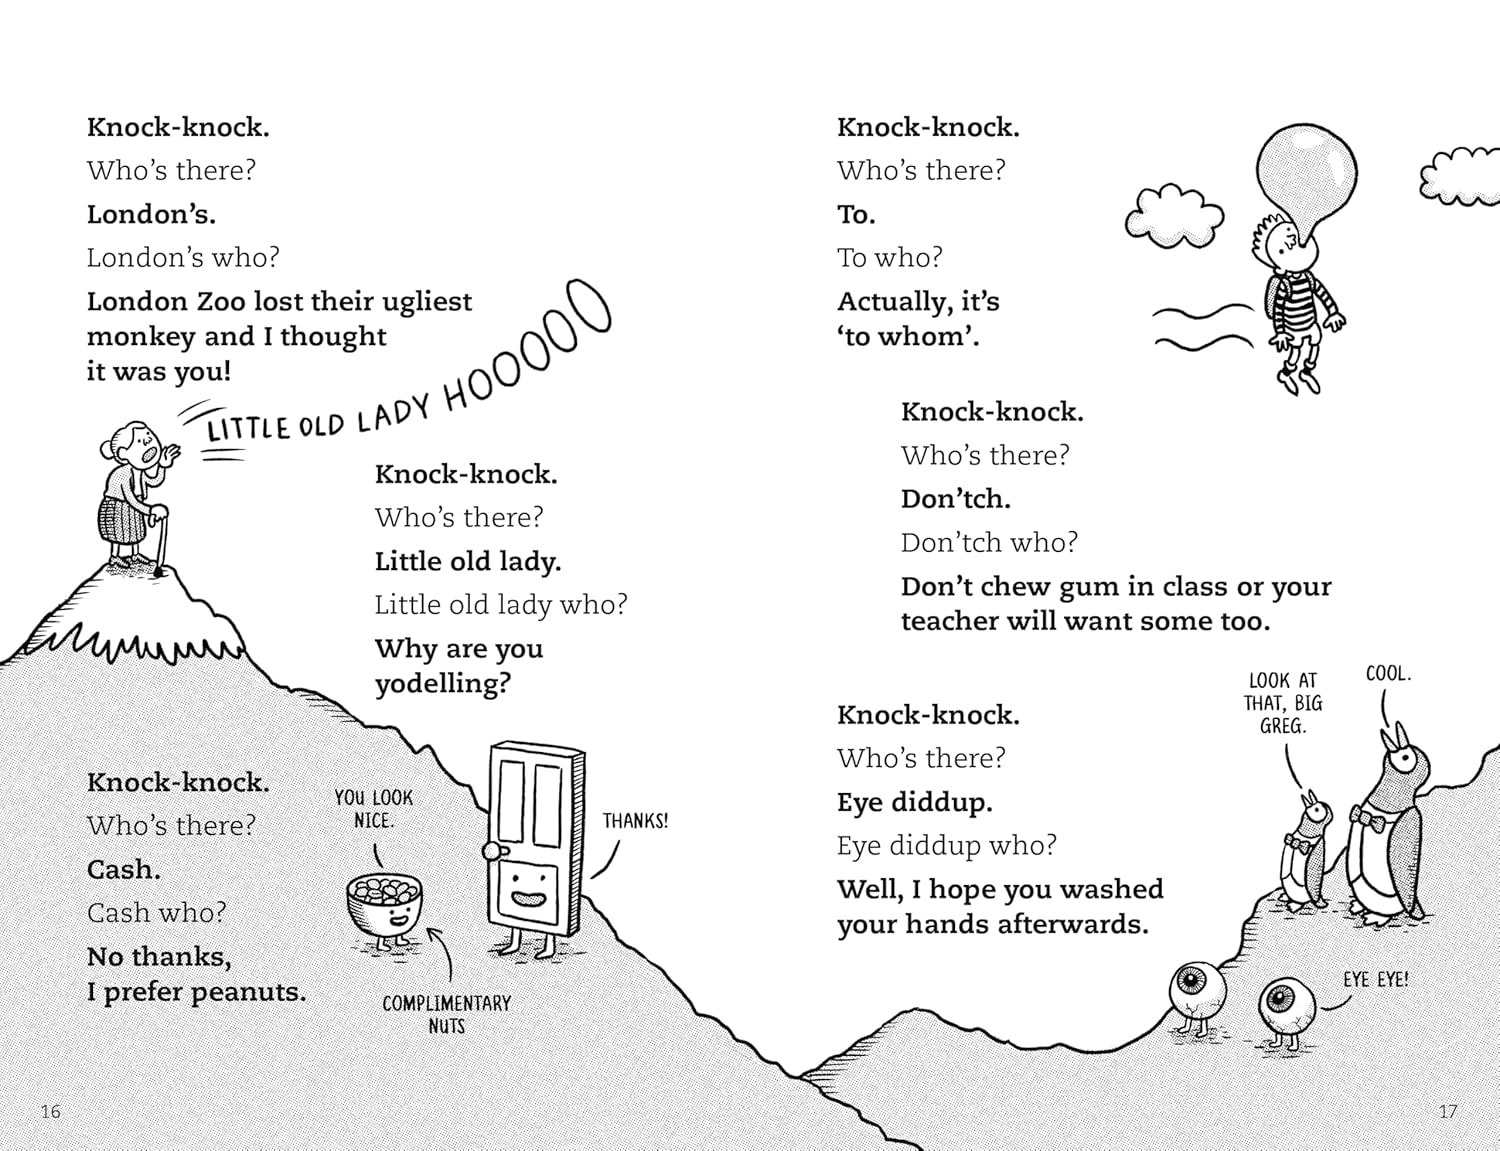 Knock-knock.
Who’s there?
London’s.
London’s who?
London Zoo lost their ugliest
monkey and I thought
it was you!
LITTLE OLD LADY HOOOOO
Knock-knock.
Who’s there?
Little old lady.
Little old lady who?
Why are you
yodelling?
Knock-knock.
Who’s there?
Cash.
Cash who?
No thanks,
I prefer peanuts.
YOU LOOK
NICE.
THANKS!
COMPLIMENTARY
NUTS
16
Knock-knock.
Who’s there?
To.
To who?
Actually, it’s
‘to whom’.
Knock-knock.
Who’s there?
Don’tch.
Don’tch who?
Don’t chew gum in class or your
teacher will want some too.
Knock-knock.
Who’s there?
Eye diddup.
Eye diddup who?
Well, I hope you washed
your hands afterwards.
LOOK AT
THAT, BIG
GREG.
COOL.
EYE EYE!
17